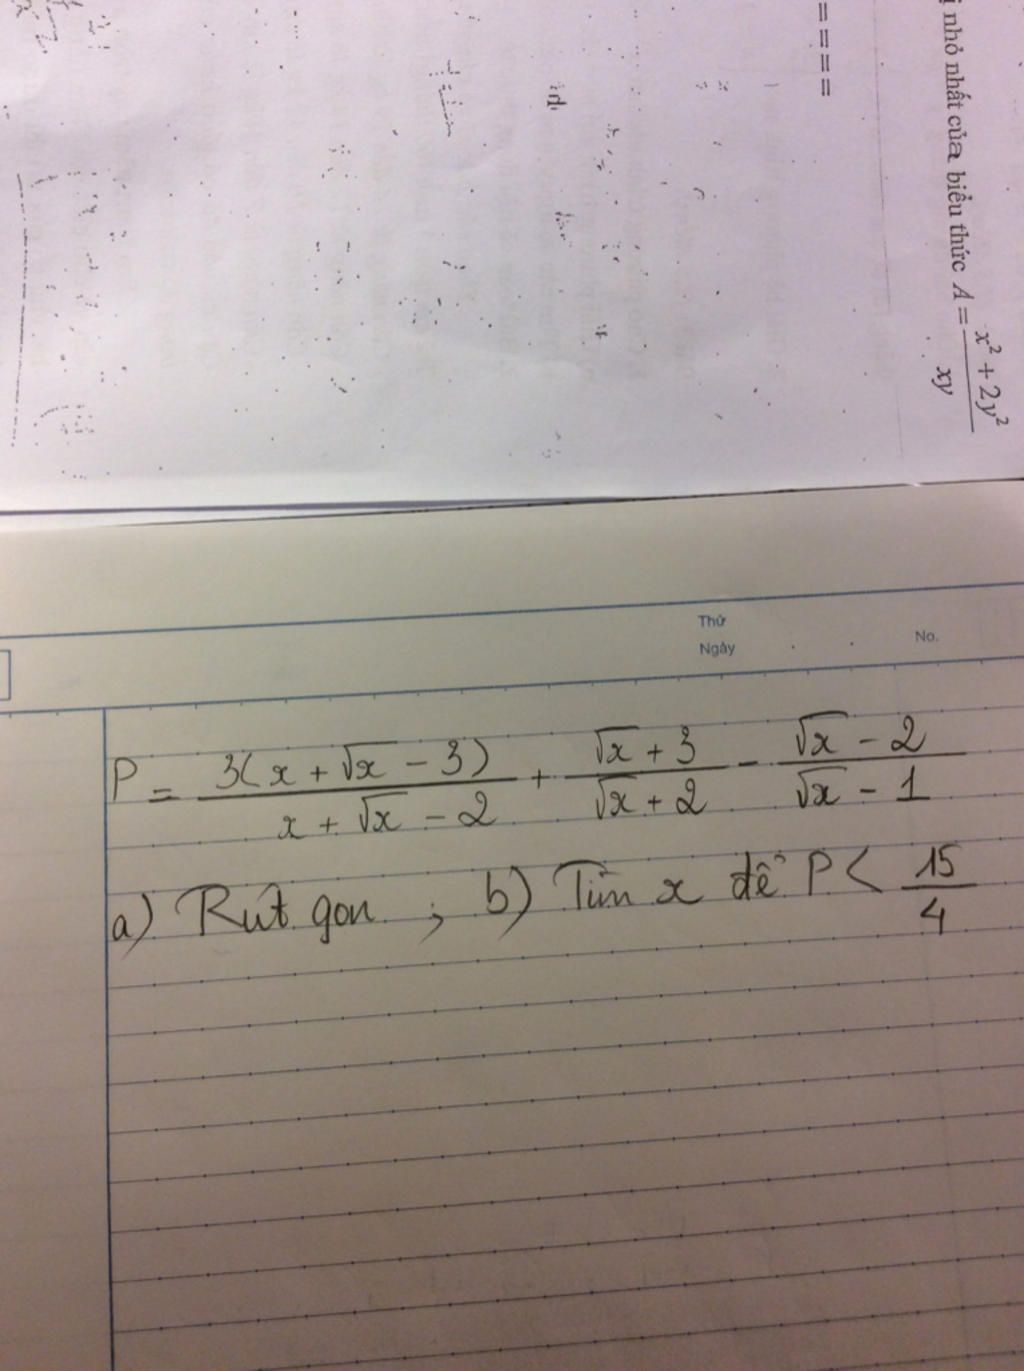 =====
ị nhỏ nhất của biểu thức A = \frac{x^2 + 2y^2}{xy}
Thứ
Ngày
No.
P = \frac{3(x + \sqrt{x} - 3)}{x + \sqrt{x} - 2} + \frac{\sqrt{x} + 3}{\sqrt{x} + 2} - \frac{\sqrt{x} - 2}{\sqrt{x} - 1}
a) Rút gon ; b) Tìm x để P < \frac{15}{4}